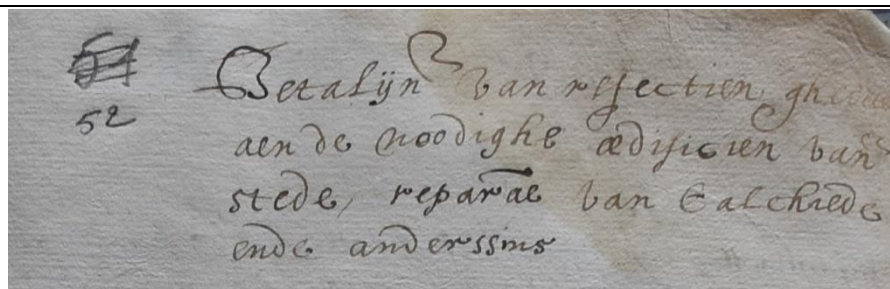 52
Betalijn van refectien ghedaen
aen de noodighe ædificien van
stede, reparãe van Calchiede
ende anderssins